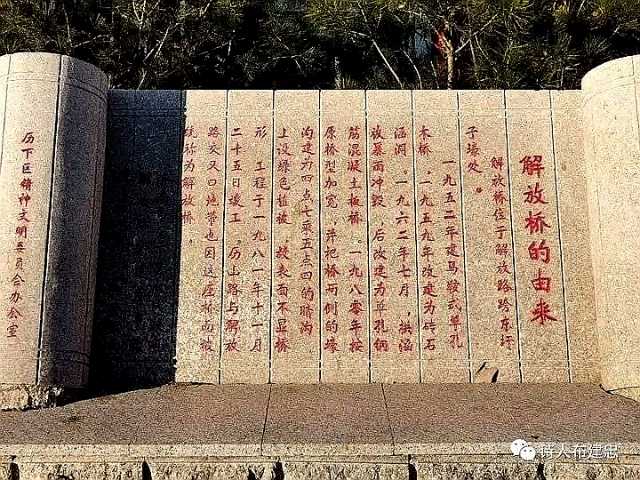 解放桥的由来
解放桥位于解放路跨东圩
子壕处。
一九五二年建马鞍式单孔
木桥，一九五九年改建为砖石
涵洞。一九六二年七月，拱涵
被暴雨冲毁，后改建为单孔钢
筋混凝土板桥。一九八零年按
原桥型加宽，并把桥两侧的壕
沟建为四点七乘五点四的暗沟
上设绿色植被，故表面不显桥
形。工程于一九八一年十一月
二十五日竣工。历山路与解放
路交叉口地带也因这座桥而被
统称为解放桥。
历下区精神文明委员会办公室
诗人布建忠